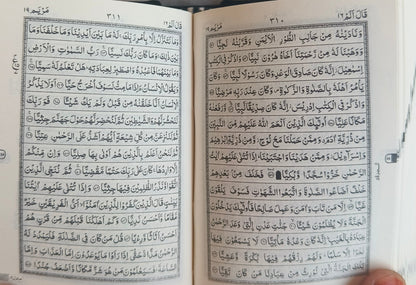 قَالَ اَلَمْ ١٦
٣١٠
مَرْيَم ١٩
وَنَادَيْنٰهُ مِنْ جَانِبِ الطُّوْرِ الْاَيْمَنِ وَقَرَّبْنٰهُ نَجِيًّا
وَوَهَبْنَا لَهٗ مِنْ رَّحْمَتِنَاۤ اَخَاهُ هٰرُوْنَ نَبِيًّا وَاذْكُرْ فِي الْكِتٰبِ
اِسْمٰعِيْلَ اِنَّهٗ كَانَ صَادِقَ الْوَعْدِ وَكَانَ رَسُوْلًا نَّبِيًّا
وَكَانَ يَاْمُرُ اَهْلَهٗ بِالصَّلٰوةِ وَالزَّكٰوةِ وَكَانَ عِنْدَ رَبِّهٖ مَرْضِيًّا
وَاذْكُرْ فِي الْكِتٰبِ اِدْرِيْسَ اِنَّهٗ كَانَ صِدِّيْقًا نَّبِيًّا وَّرَفَعْنٰهُ
مَكَانًا عَلِيًّا اُولٰٓئِكَ الَّذِيْنَ اَنْعَمَ اللّٰهُ عَلَيْهِمْ مِّنَ النَّبِيّٖنَ
مِنْ ذُرِّيَّةِ اٰدَمَ وَمِمَّنْ حَمَلْنَا مَعَ نُوْحٍ وَّمِنْ ذُرِّيَّةِ اِبْرٰهِيْمَ
وَاِسْرَآءِيْلَ وَمِمَّنْ هَدَيْنَا وَاجْتَبَيْنَا اِذَا تُتْلٰى عَلَيْهِمْ اٰيٰتُ
الرَّحْمٰنِ خَرُّوْا سُجَّدًا وَّبُكِيًّا فَخَلَفَ مِنْۢ بَعْدِهِمْ خَلْفٌ
اَضَاعُوا الصَّلٰوةَ وَاتَّبَعُوا الشَّهَوٰتِ فَسَوْفَ يَلْقَوْنَ غَيًّا
اِلَّا مَنْ تَابَ وَاٰمَنَ وَعَمِلَ صَالِحًا فَاُولٰٓئِكَ يَدْخُلُوْنَ
الْجَنَّةَ وَلَا يُظْلَمُوْنَ شَيْـًٔا جَنّٰتِ عَدْنِ ۨالَّتِيْ وَعَدَ الرَّحْمٰنُ
عِبَادَهٗ بِالْغَيْبِ اِنَّهٗ كَانَ وَعْدُهٗ مَاْتِيًّا لَا يَسْمَعُوْنَ فِيْهَا
لَغْوًا اِلَّا سَلٰمًا وَلَهُمْ رِزْقُهُمْ فِيْهَا بُكْرَةً وَّعَشِيًّا
تِلْكَ الْجَنَّةُ الَّتِيْ نُوْرِثُ مِنْ عِبَادِنَا مَنْ كَانَ تَقِيًّا
قَالَ اَلَمْ ١٦
٣١١
مَرْيَم ١٩
وَمَا نَتَنَزَّلُ اِلَّا بِاَمْرِ رَبِّكَ لَهٗ مَا بَيْنَ اَيْدِيْنَا وَمَا خَلْفَنَا وَمَا
بَيْنَ ذٰلِكَ وَمَا كَانَ رَبُّكَ نَسِيًّا رَبُّ السَّمٰوٰتِ وَالْاَرْضِ
وَمَا بَيْنَهُمَا فَاعْبُدْهُ وَاصْطَبِرْ لِعِبَادَتِهٖ هَلْ تَعْلَمُ لَهٗ سَمِيًّا
وَيَقُوْلُ الْاِنْسَانُ ءَاِذَا مَا مِتُّ لَسَوْفَ اُخْرَجُ حَيًّا اَوَلَا يَذْكُرُ
الْاِنْسَانُ اَنَّا خَلَقْنٰهُ مِنْ قَبْلُ وَلَمْ يَكُ شَيْـًٔا فَوَرَبِّكَ
لَنَحْشُرَنَّهُمْ وَالشَّيٰطِيْنَ ثُمَّ لَنُحْضِرَنَّهُمْ حَوْلَ جَهَنَّمَ جِثِيًّا
ثُمَّ لَنَنْزِعَنَّ مِنْ كُلِّ شِيْعَةٍ اَيُّهُمْ اَشَدُّ عَلَى الرَّحْمٰنِ عِتِيًّا
ثُمَّ لَنَحْنُ اَعْلَمُ بِالَّذِيْنَ هُمْ اَوْلٰى بِهَا صِلِيًّا وَاِنْ مِّنْكُمْ
اِلَّا وَارِدُهَا كَانَ عَلٰى رَبِّكَ حَتْمًا مَّقْضِيًّا ثُمَّ نُنَجِّي الَّذِيْنَ
اتَّقَوْا وَّنَذَرُ الظّٰلِمِيْنَ فِيْهَا جِثِيًّا وَاِذَا تُتْلٰى عَلَيْهِمْ اٰيٰتُنَا
بَيِّنٰتٍ قَالَ الَّذِيْنَ كَفَرُوْا لِلَّذِيْنَ اٰمَنُوْۤا اَيُّ الْفَرِيْقَيْنِ خَيْرٌ
مَّقَامًا وَّاَحْسَنُ نَدِيًّا وَكَمْ اَهْلَكْنَا قَبْلَهُمْ مِّنْ قَرْنٍ هُمْ
اَحْسَنُ اَثَاثًا وَّرِءْيًا قُلْ مَنْ كَانَ فِي الضَّلٰلَةِ فَلْيَمْدُدْ لَهُ
الرَّحْمٰنُ مَدًّا حَتّٰۤى اِذَا رَاَوْا مَا يُوْعَدُوْنَ اِمَّا الْعَذَابَ وَاِمَّا
السَّاعَةَ فَسَيَعْلَمُوْنَ مَنْ هُوَ شَرٌّ مَّكَانًا وَّاَضْعَفُ جُنْدًا